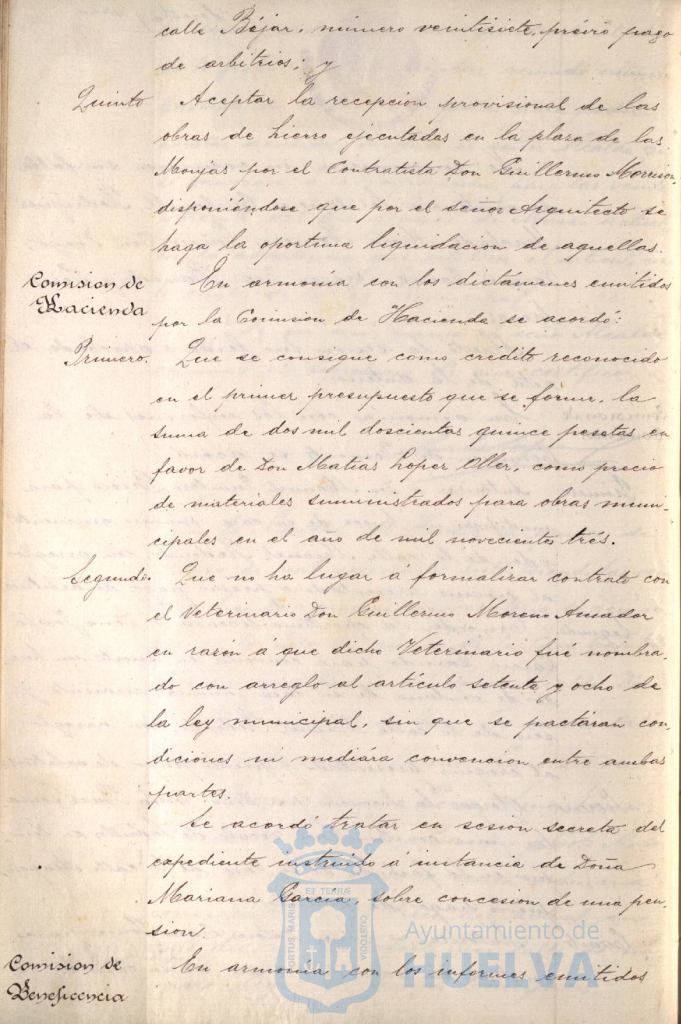 calle Béjar, número veintisiete, prévio pago
de arbitrios; y
Quinto Aceptar la recepcion provisional de las
obras de hierro ejecutadas en la plaza de las
Monjas por el Contratista Don Guillermo Morrison,
disponiéndose que por el señor Arquitecto se
haga la oportuna liquidacion de aquellas.
Comision de
Hacienda
En armonía con los dictámenes emitidos
por la Comision de Hacienda se acordó:
Primero. Que se consigne como crédito reconocido
en el primer presupuesto que se forme, la
suma de dos mil doscientas quince pesetas en
favor de Don Matías Lopez Oller, como precio
de materiales suministrados para obras muni-
cipales en el año de mil novecientos trés.
Segundo. Que no ha lugar á formalizar contrato con
el Veterinario Don Guillermo Moreno Amador
en razón á que dicho Veterinario fué nombra-
do con arreglo al artículo setenta y ocho de
la ley municipal, sin que se pactáran con-
diciones ni mediára convencion entre ambas
partes.
Se acordó tratar en sesion secreta del
expediente instruido á instancia de Doña
Mariana García, sobre concesion de una pen-
sion.
Comision de
Beneficencia
En armonía con los informes emitidos
PORTUS MARIS ET TERRÆ CUSTODIA
Ayuntamiento de
HUELVA